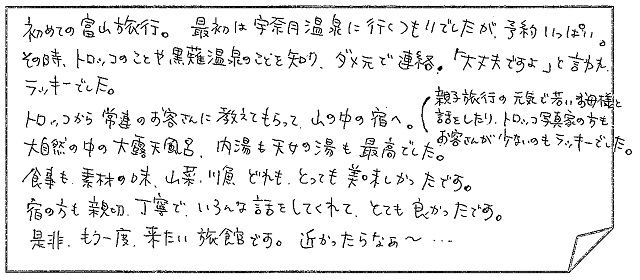 初めての富山旅行。 最初は宇奈月温泉に行くつもりでしたが、予約いっぱい。
その時、トロッコのことや黒薙温泉のことを知り、ダメ元で連絡。「大丈夫ですよ」と言われ
ラッキーでした。
トロッコから常連のお客さんに教えてもらって、山の中の宿へ。
(親子旅行の元気で若いお母様と
話をしたり、トロッコ写真家の方も
お客さんが少ないのもラッキーでした。
大自然の中の大露天風呂、内湯も天女の湯も最高でした。
食事も、素材の味、山菜、川魚 どれも、とっても美味しかったです。
宿の方も親切、丁寧で、いろんな話をしてくれて、とても良かったです。
是非、もう一度、来たい旅館です。 近かったらなぁ〜 …